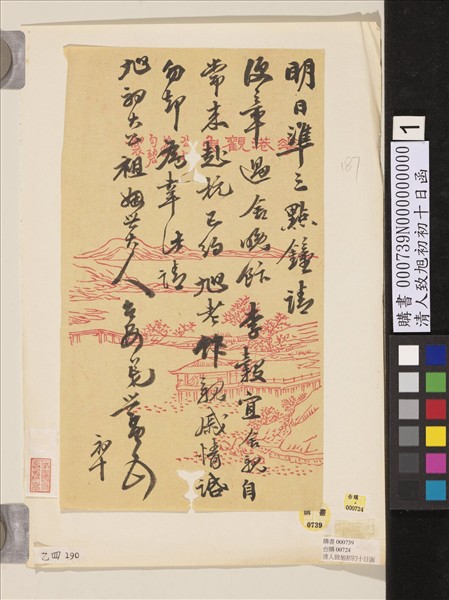 明日準三點鐘請
過舍晚飲 李穀宜舍親自
常來赴杭已約旭老作親戚情話
勿卻爲幸 此請
旭初大公祖姻世大人
初十
花港觀魚
187
1
購書 000739N000000000000
清人致旭初初十日函
購書
0739
台購
000724
購書 000739
台購 00724
清人致旭初初十日函
乙四 190